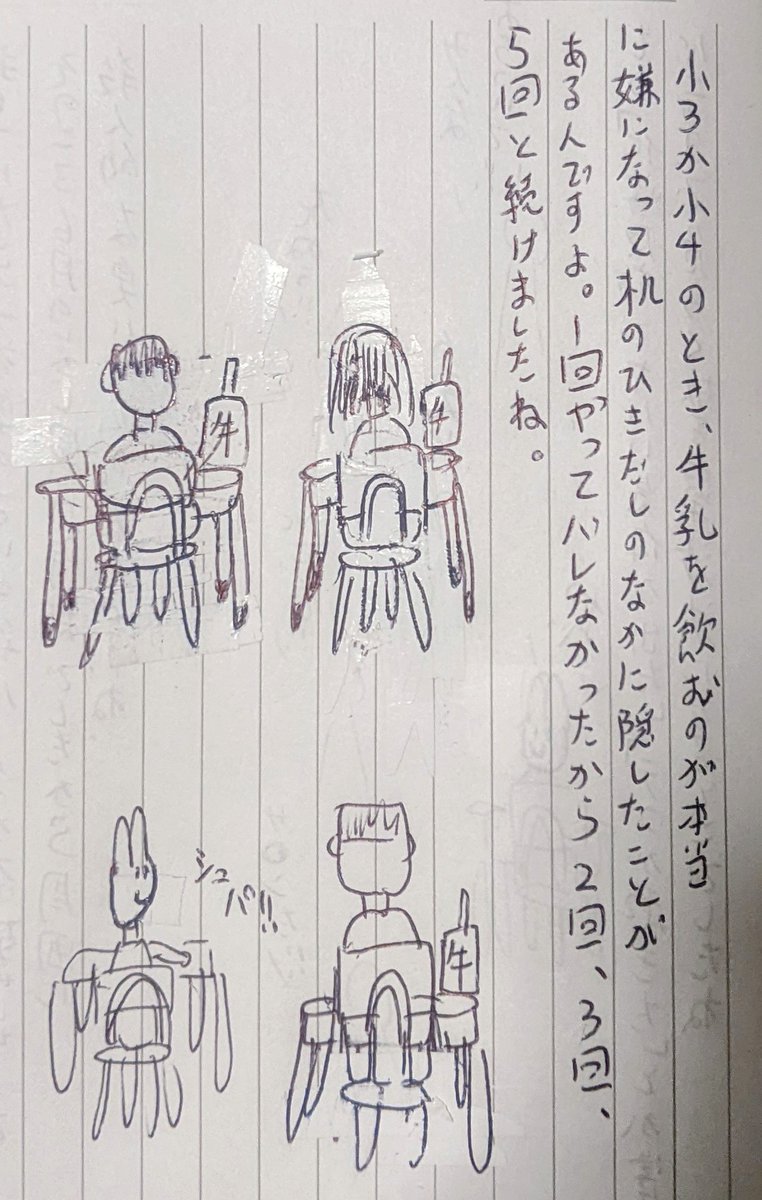 小3か小4のとき、牛乳を飲むのが本当
に嫌になって机のひきだしのなかに隠したことが
あるんですよ。1回やってバレなかったから2回、3回、
5回と続けましたね。
牛
牛
牛
シュバ!!